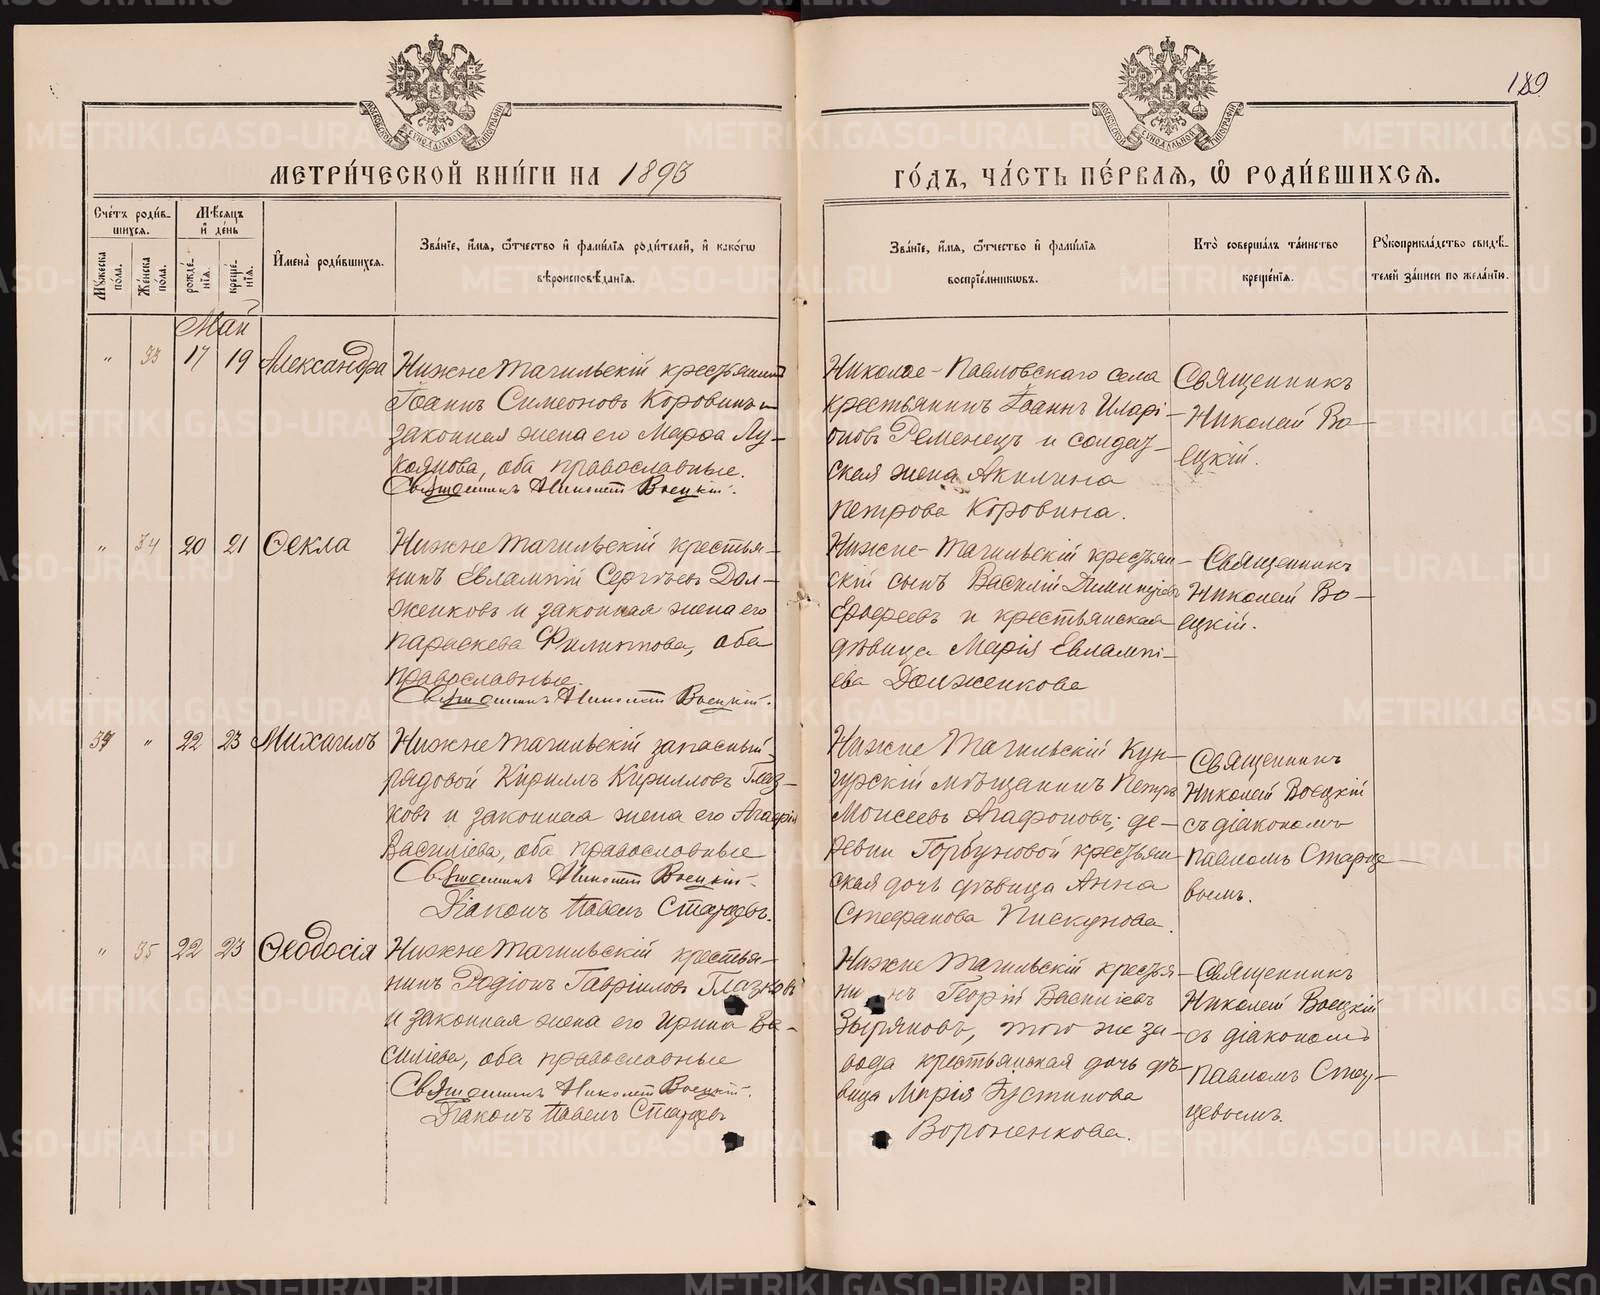 189
МОСКОВСКОЙ СѴНОДАЛЬНОЙ ТИПОГРАФІИ
МОСКОВСКОЙ СѴНОДАЛЬНОЙ ТИПОГРАФІИ
МЕТРИ́ЧЕСКОЙ КНИ́ГИ НА 1893
ГО́ДЪ, ЧА́СТЬ ПЕ́РВАЯ, Ѽ РОДИ́ВШИХСЯ.
Сче́тъ роди́в-
шихся.
Мѣ́сяцъ
и҆ де́нь
Му́жеска
по́ла.
Же́нска
по́ла.
рожде́-
нїя.
креще́-
нїя.
И҆мена̀ роди́вшихся.
Зва́нїе, и҆́мя, ѻ҆́тчество и҆ фами́лїя роди́телей, и҆ како́гѡ
вѣроисповѣ́данїя.
Зва́нїе, и҆́мя, ѻ҆́тчество и҆ фами́лїя
воспрїе́мникѡвъ.
Кто̀ соверша́лъ та́инство
креще́нїя.
Рукоприкла́дство свидѣ́-
телей за́писи по жела́нїю.
Май
" 33 17 19 Александра
Нижне Тагильскій крестьянинъ
Іоаннъ Симеоновъ Коровинъ и
законная жена его Марѳа Лу-
коянова, оба православные.
Священникъ Николай Воецкій.
Николае-Павловскаго села
крестьянинъ Іоаннъ Иларі-
оновъ Ременецъ и солдат-
ская жена Акилина
Петрова Коровина.
Священникъ
Николай Во-
ецкій.
" 34 20 21 Ѳекла
Нижне Тагильскій крестья-
нинъ Евлампій Сергѣевъ Дол-
женковъ и законная жена его
Параскева Филиппова, оба
православные.
Священникъ Николай Воецкій.
Нижне-Тагильскій крестьян-
скій сынъ Василій Димитріевъ
Ерофеевъ и крестьянская
дѣвица Марія Евлампі-
ева Долженкова
Священникъ
Николай Во-
ецкій.
37 " 22 23 Михаилъ
Нижне Тагильскій запасный
рядовой Кириллъ Кирилловъ Глаз-
ковъ и законная жена его Агафія
Василіева, оба православные
Священникъ Николай Воецкій.
Діаконъ Павелъ Старцевъ.
Нижне Тагильскій Кун-
гурскій мѣщанинъ Петръ
Моисеевъ Агафоновъ; де-
ревни Горбуновой крестьян-
ская дочь дѣвица Анна
Стефанова Пискунова.
Священникъ
Николай Воецкій
съ діакономъ
Павломъ Старце-
вымъ.
" 35 22 23 Ѳеодосія
Нижне Тагильскій крестья-
нинъ Родіонъ Гавріиловъ Глазковъ
и законная жена его Ирина Ва-
силіева, оба православные
Священникъ Николай Воецкій.
Діаконъ Павелъ Старцевъ
Нижне Тагильскій крестья-
нинъ Георгій Василіевъ
Зыряновъ, того же за-
вода крестьянская дочь дѣ-
вица Марія Іустинова
Вороненкова.
Священникъ
Николай Воецкій
съ діакономъ
Павломъ Стар-
цевымъ.
METRIKI.GASO-URAL.RU